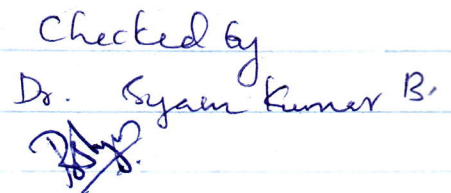 Checked by
Dr. Syam Kumar B.